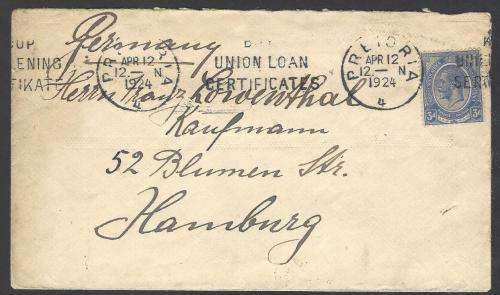 Germany
Herrn Mayr Lowenthal
Kaufmann
52 Blumen Str.
Hamburg
PRETORIA
APR 12
12 — N
1924
4
BUY
UNION LOAN
CERTIFICATES
PRETORIA
APR 12
12 — N
1924
4
3d 3d
OOP
LENING
TIFIKATE
K
UNIE
SERT